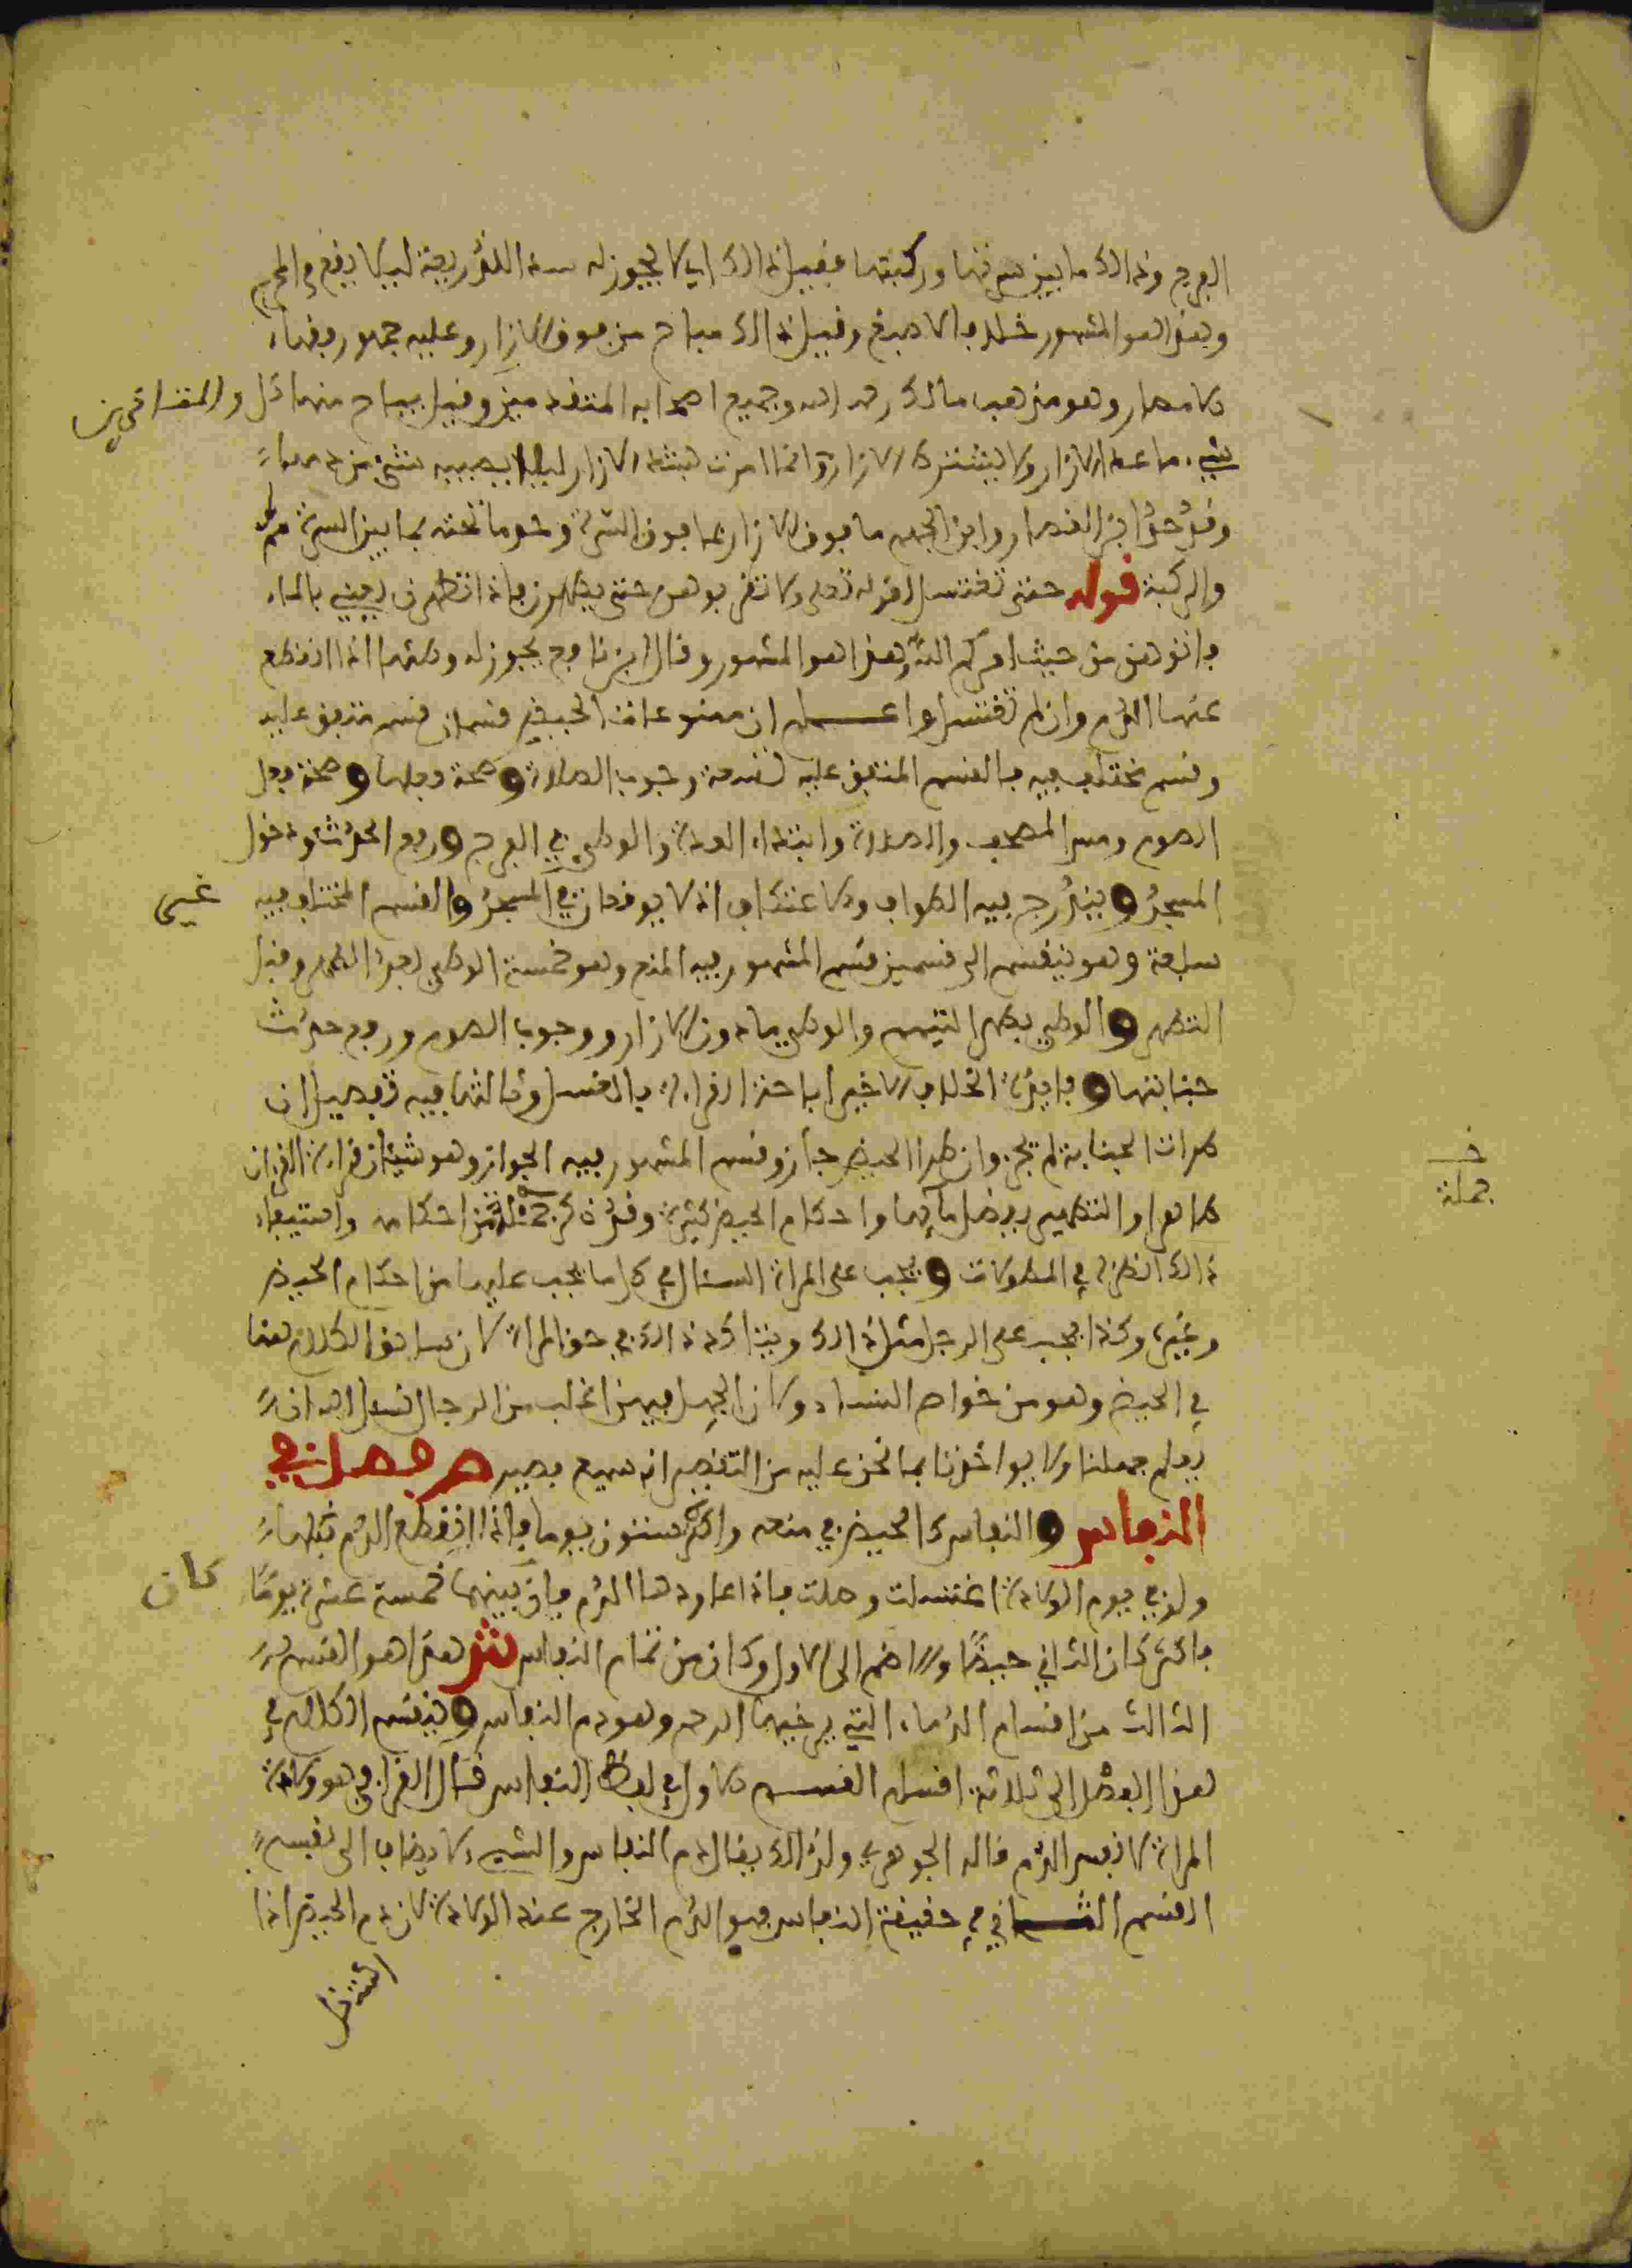 الفرج وذالك ما بين سرتها وركبتها فقيل ذالك اي لا يجوز له سد الذريعة ليلا يقع في المحرم
وهذا هو المشهور خلافا لاصبغ وقيل ذالك مباح من فوق الازار وعليه جمهور فقهاء
الامصار وهو مذهب مالك رحمه الله وجميع اصحابه المتقدمين وقيل يباح منها كل والمتاخرين
شيء ما عدا الازار ولا يشترط الازار وانما امرت بشد الازار ليلا يصيبه شيء من دمها
وقد حد ابن القصار وابن الجهم ما فوق الازار بما فوق السرة وحد ما تحته بما بين السرة
والركبة قوله حتى تغتسل لقوله تعلى ولا تقربوهن حتى يطهرن فاذا تطهرن يعني بالماء
فاتوهن من حيث امركم الله هذا هو المشهور وقال ابن نافع يجوز له وطئها اذا انقطع
عنها الدم وان لم تغتسل واعلم ان ممنوعات الحيض قسمان قسم متفق عليه
وقسم مختلف فيه فالقسم المتفق عليه تسعة وجوب الصلاة وصحة فعلها وصحة فعل
الصوم ومس المصحف والصلاة وابتداء العدة والوطي في الفرج ورفع الحدث ودخول
المسجد ويندرج فيه الطواف والاعتكاف اذ لا يوقعان في المسجد والقسم المختلف فيه غير
سبعة وهو ينقسم الى قسمين قسم المشهور فيه المنع وهو خمسة الوطي بعد الطهر وقبل
التطهر والوطي بطهر التيمم والوطي ما دون الازار ووجوب الصوم ورفع حدث
جنابتها وفايدة الخلاف الاخير اباحة القراءة بالغسل وثالثها فيه تفصيل ان
طرات الجنابة لم تجز وان طرا الحيض جاز وقسم المشهور فيه الجواز وهو شيئان قراءة القران
ظاهرا والتطهير بفضل مائها واحكام الحيض كثيرة وقد ذكر جملة من احكامه واستيفاء
خـ جملة
ذالك انظره في المطولات ويجب على المراة السئال في كل ما يجب عليها من احكام الحيض
وغيره وكذا يجب على الرجل مثل ذالك ويتاكد ذالك في حق المراة لان سياق الكلام هنا
في الحيض وهو من خواص النساء ولان الجهل فيهن اغلب من الرجال نسئل الله ان
يعلم جهلنا ولا يواخذنا بما نحن عليه من التقصير انه سميع بصير ص فصل في
النفاس والنفاس كالحيض في منعه واكثره ستون يوما فاذا انقطع الدم قبلها
ولو في يوم الولادة اغتسلت وصلت فاذا عاودها الدم فان كان بينهما خمسة عشرة يوما
فاكثر كان الثاني حيضا والا ضم الى الاول وكان من تمام النفاس ش هذا هو القسم
الثالث من اقسام الدماء التي يرخيها الرحم وهو دم النفاس وينقسم الكلام في
هذا الفصل الى ثلاثة اقسام القسم الاول في لفظ النفاس قال القرافي هو ولادة
المراة لا نفس الدم قاله الجوهري ولذالك يقال دم النفاس والشيء لا يضاف الى نفسه
القسم الثاني في حقيقة النفاس فهو الدم الخارج عند الولادة لان دم الحيض اذا
اشتغل